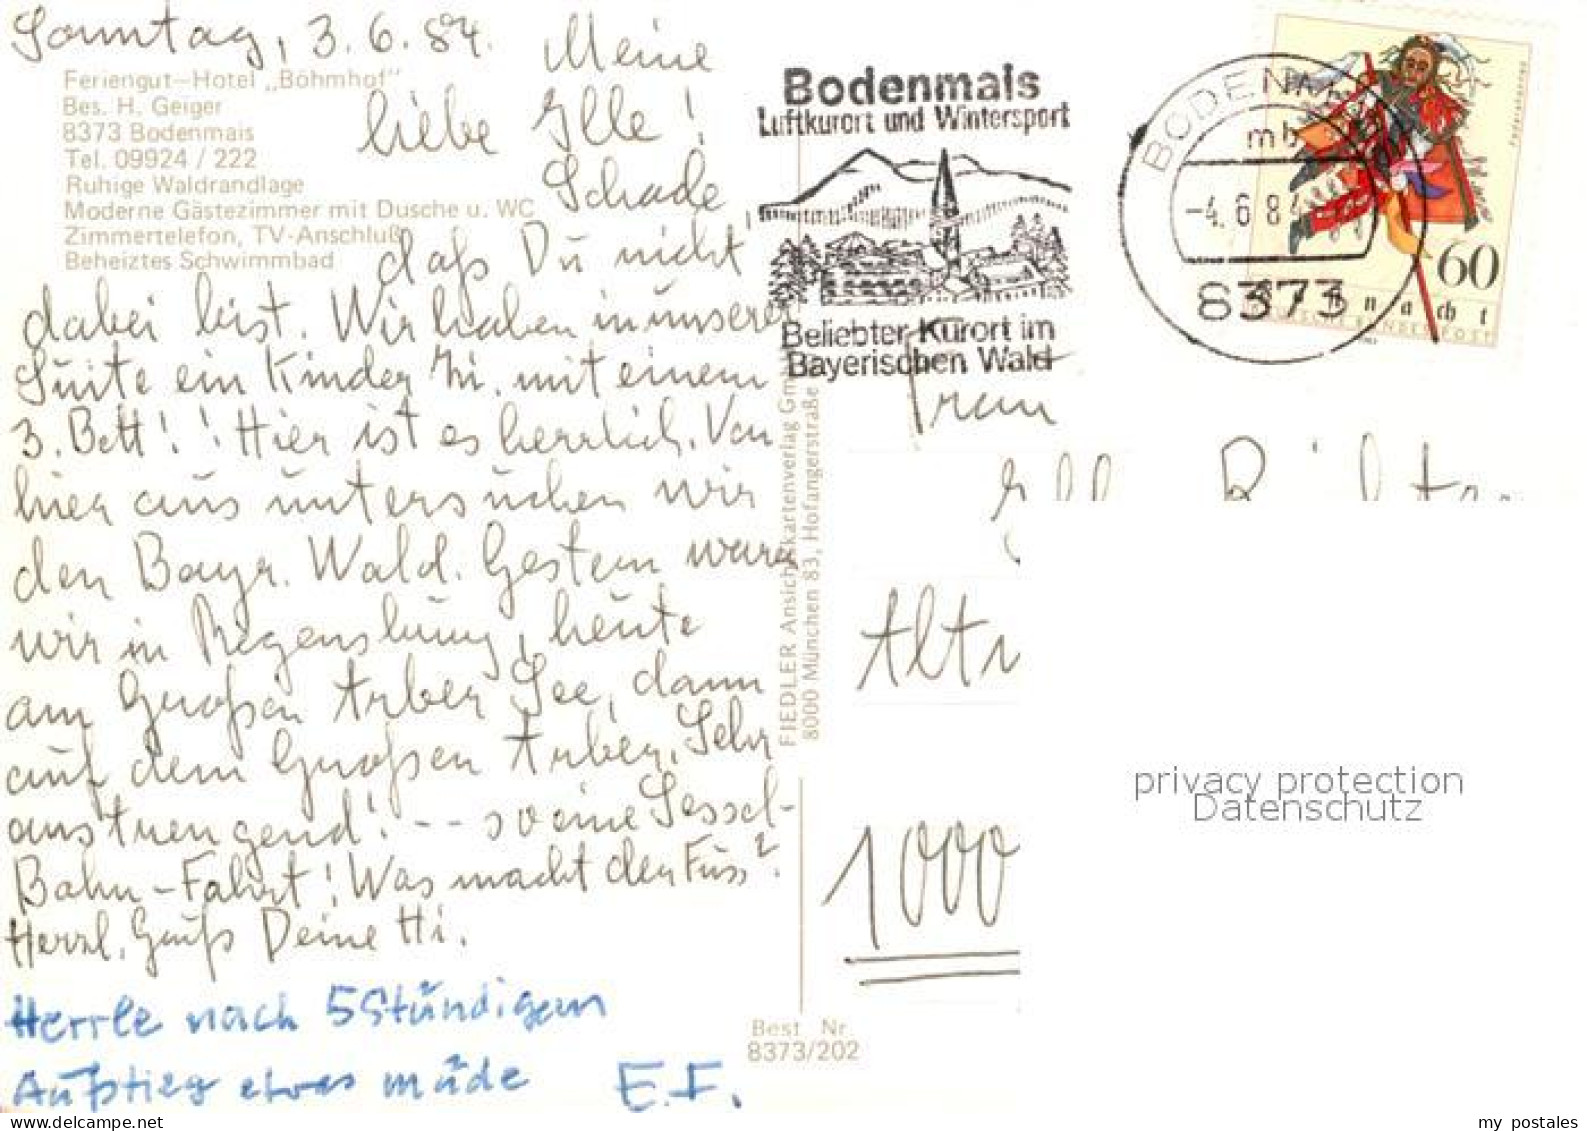 Sonntag, 3.6.84.
Meine
liebe Ille!
Schade,
daß Du nicht
dabei bist. Wir haben in unserer
Suite ein Kinder Zi. mit einem
3. Bett!! Hier ist es herrlich. Von
hier aus untersuchen wir
den Bayr. Wald. Gestern waren
wir in Regensburg, heute
am Großen Arber See, dann
auf dem Großen Arber. Sehr
anstrengend! -- so eine Sessel-
Bahn-Fahrt! Was macht der Fuss?
Herzl. Gruß Deine Hi.
Herrle nach 5 Stündigem
Aufstieg etwas müde E.F.
Feriengut-Hotel „Böhmhof"
Bes. H. Geiger
8373 Bodenmais
Tel. 09924 / 222
Ruhige Waldrandlage
Moderne Gästezimmer mit Dusche u. WC
Zimmertelefon, TV-Anschluß
Beheiztes Schwimmbad
FIEDLER Ansichtskartenverlag GmbH
8000 München 83, Hofangerstraße
Best. Nr.
8373/202
Bodenmais
Luftkurort und Wintersport
Beliebter Kurort im
Bayerischen Wald
BODENMAIS
mb
-4.6.84
8373
60
DEUTSCHE BUNDESPOST
Frau
1000
privacy protection
Datenschutz
my postales